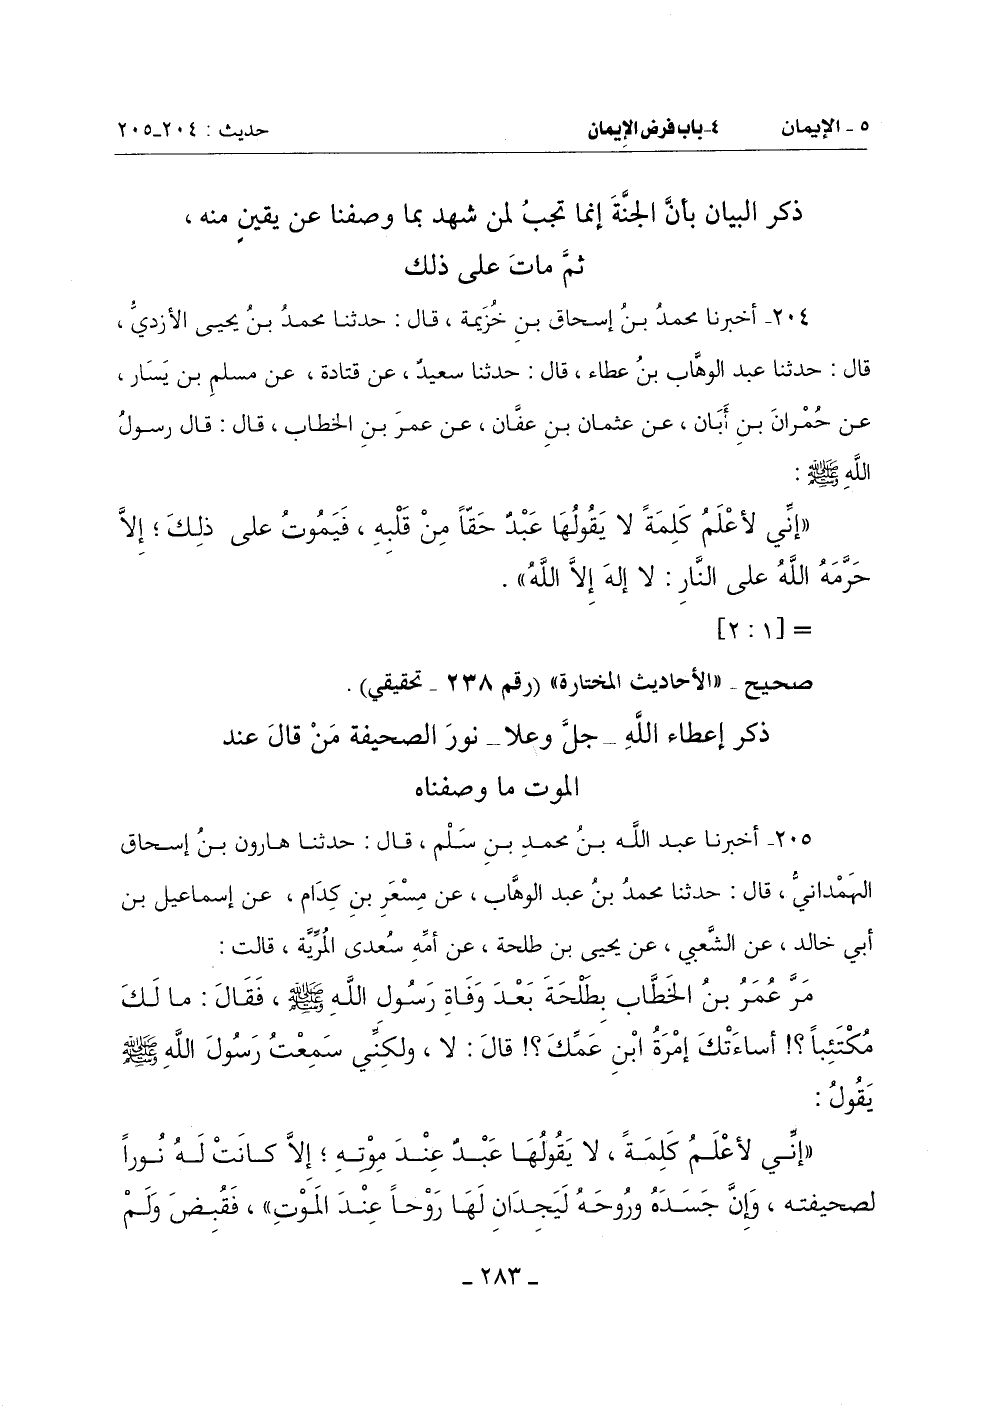 ٥ - الإيمان ٤- باب فرض الإيمان حديث : ٢٠٤-٢٠٥
ذكر البيان بأنَّ الجنَّةَ إنما تجبُ لمن شهد بما وصفنا عن يقينٍ منه ،
ثمَّ ماتَ على ذلك
٢٠٤- أخبرنا محمدُ بنُ إسحاق بنِ خُزَيمة ، قال : حدثنا محمدُ بنُ يحيى الأزديُّ ،
قال : حدثنا عبد الوهَّاب بنُ عطاء ، قال : حدثنا سعيدٌ ، عن قتادة ، عن مسلمِ بن يَسَار ،
عن حُمْرانَ بنِ أَبَان ، عن عثمان بنِ عفَّان ، عن عمرَ بنِ الخطاب ، قال : قال رسولُ
اللَّهِ ﷺ :
«إنِّي لأعْلَمُ كَلِمَةً لا يَقُولُهَا عَبْدٌ حَقّاً مِنْ قَلْبِهِ ، فَيَمُوتُ على ذلِكَ ؛ إلاَّ
حَرَّمَهُ اللَّهُ على النَّارِ : لا إلهَ إلاَّ اللَّهُ» .
= [١ : ٢]
صحيح - «الأحاديث المختارة» (رقم ٢٣٨ - تحقيقي) .
ذكر إعطاء اللَّهِ - جلَّ وعلا - نورَ الصحيفة مَنْ قالَ عند
الموت ما وصفناه
٢٠٥- أخبرنا عبد اللَّه بنُ محمدِ بنِ سَلْم ، قال : حدثنا هارون بنُ إسحاق
الهَمْدانيُّ ، قال : حدثنا محمدُ بنُ عبد الوهَّاب ، عن مِسْعَرِ بنِ كِدَام ، عن إسماعيل بن
أبي خالد ، عن الشَّعبي ، عن يحيى بن طلحة ، عن أمِّه سُعدى المُرِّيَّة ، قالت :
مَرَّ عُمَرُ بنُ الخطَّابِ بِطَلْحَةَ بَعْدَ وَفَاةِ رَسُولِ اللَّهِ ﷺ ، فَقَالَ : ما لَكَ
مُكْتَئِباً ؟! أساءَتْكَ إمْرَةُ ابْنِ عَمِّكَ ؟! قالَ : لا ، ولكِنِّي سَمِعْتُ رَسُولَ اللَّهِ ﷺ
يَقُولُ :
«إنِّي لأعْلَمُ كَلِمَةً ، لا يَقُولُهَا عَبْدٌ عِنْدَ مِوْتِهِ ؛ إلاَّ كانَتْ لَهُ نُوراً
لصحيفته ، وَإنَّ جَسَدَهُ ورُوحَهُ لَيَجِدَانِ لَهَا رَوْحاً عِنْدَ المَوْتِ» ، فَقُبِضَ وَلَمْ
- ٢٨٣ -